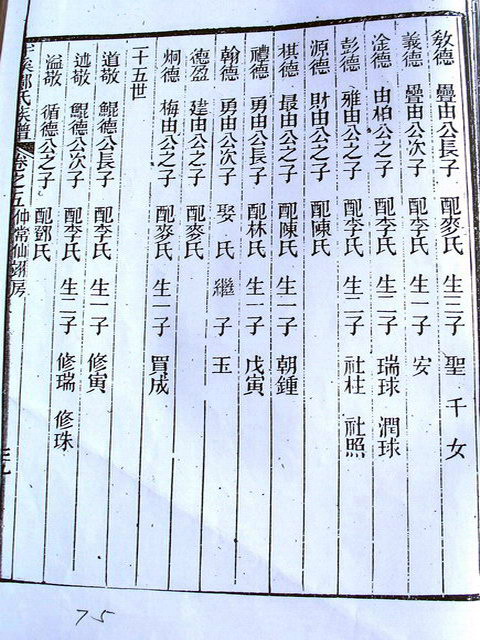 敎德 疊由公長子 配麥氏 生三子 聖 千 女
義德 疊由公次子 配李氏 生一子 安
淦德 由柏公之子 配李氏 生二子 瑞球 潤球
彭德 雅由公之子 配李氏 生二子 社柱 社照
源德 財由公之子 配陳氏
棋德 最由公之子 配陳氏 生一子 朝鍾
禮德 勇由公長子 配林氏 生一子 戊寅
翰德 勇由公次子 娶 氏 繼 子 玉
德盈 建由公之子 配麥氏
炯德 梅由公之子 配麥氏 生一子 買成
二十五世
道敬 鯤德公長子 配李氏 生一子 修寅
述敬 鯤德公次子 配李氏 生二子 修瑞 修珠
溢敬 循德公之子 配鄧氏
氏族譜 卷之五仲常仙翊房
75